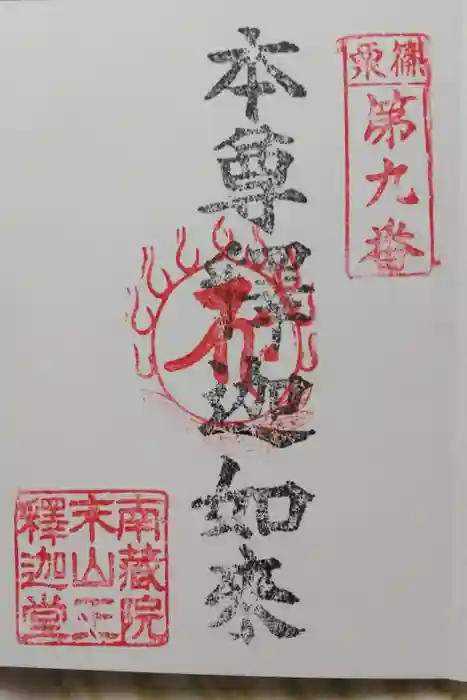 篠栗
第九番
本尊釋迦如來
南藏院
末山正
釋迦堂